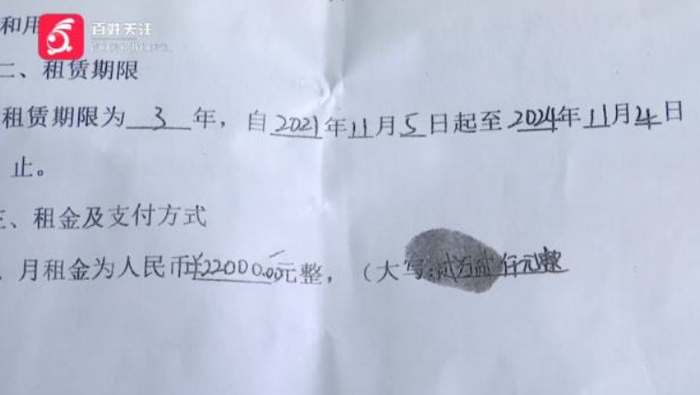 百姓关注
和用
二、租赁期限
租赁期限为 3 年，自2021年11月5日起至2024年11月4日
止。
三、租金及支付方式
月租金为人民币¥22000.00元整，（大写:贰万贰仟元整